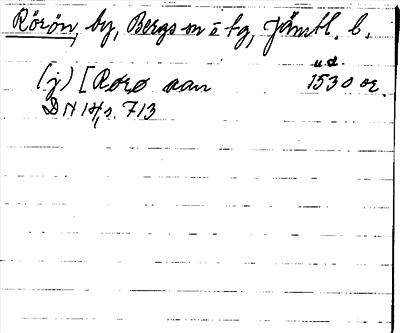 Rörön, by, Bergs sn o tg, Jämtl. l.
u.d.
(j) [Rørø aan 1530 or.
DN 14, s. 713